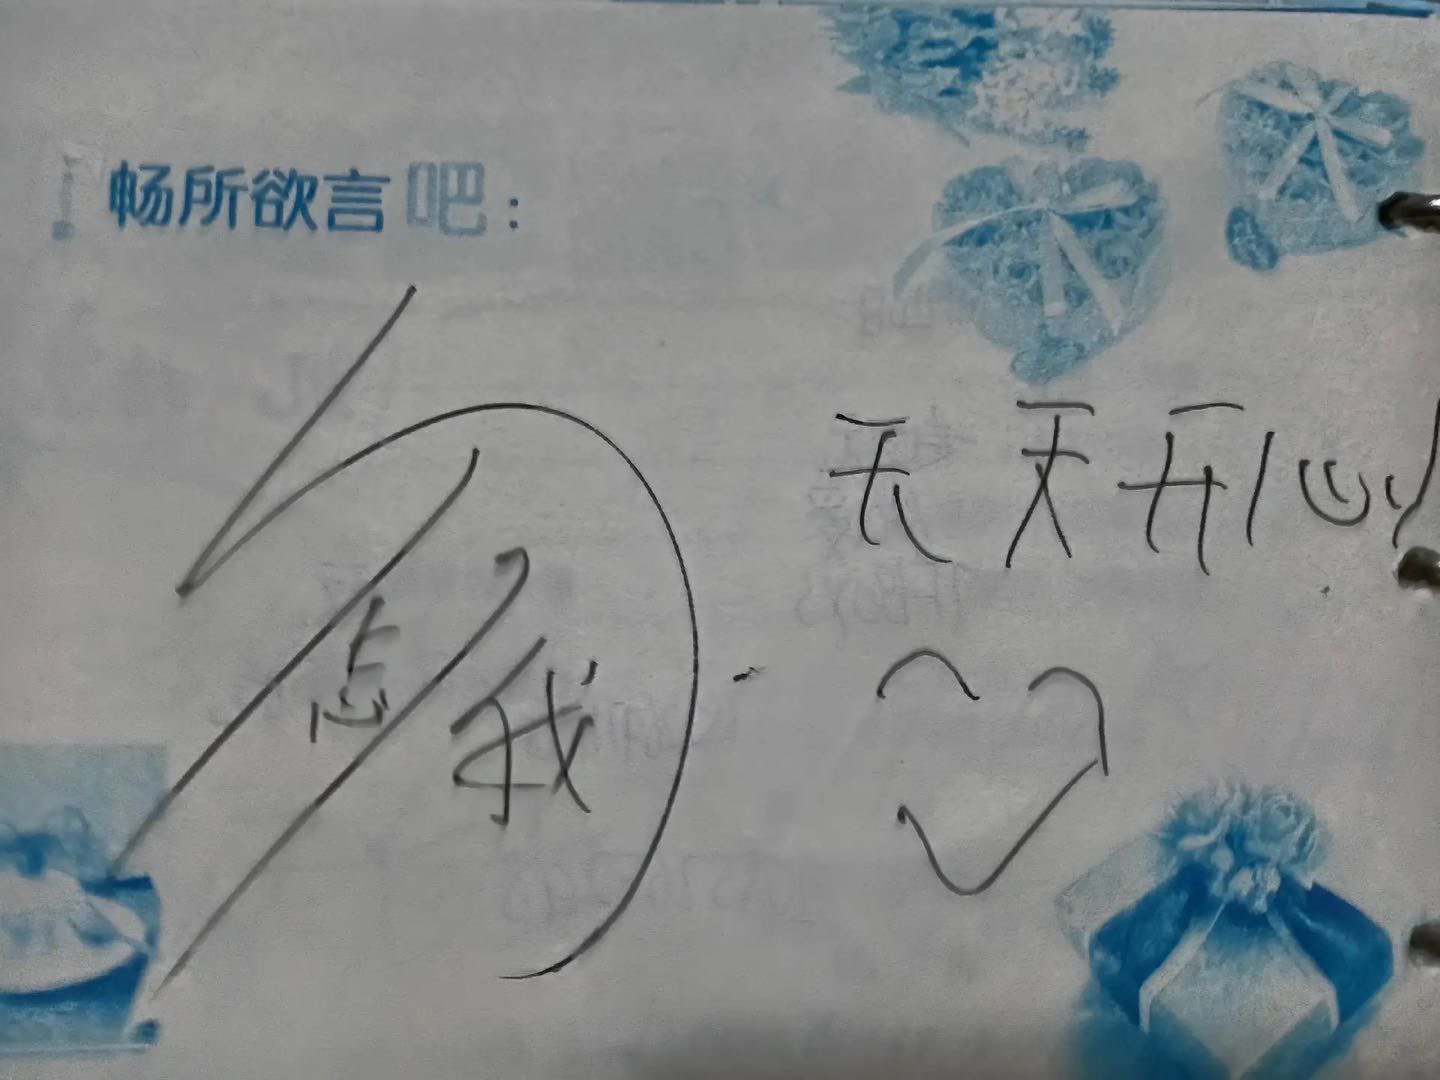 畅所欲言吧：
勿忘我.
天天开心!